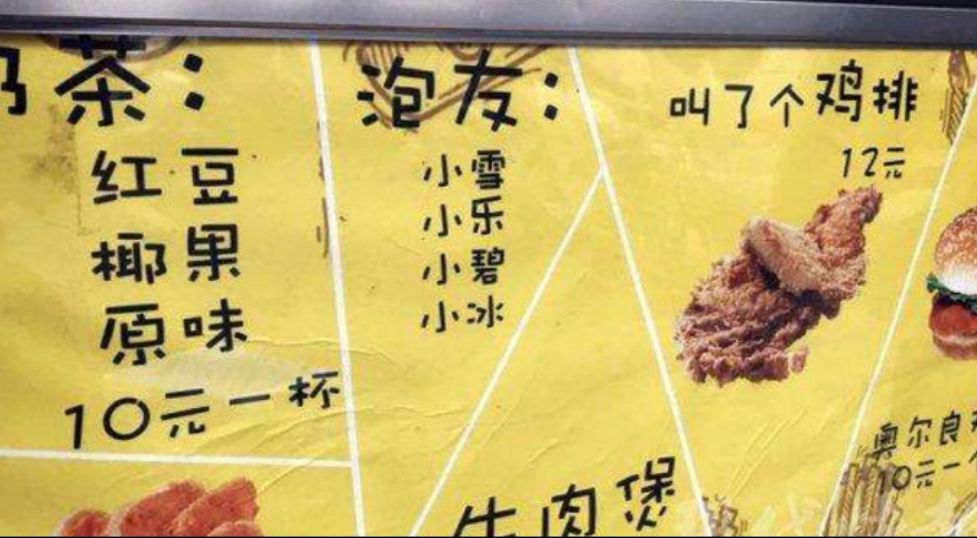 奶茶：
红豆
椰果
原味
10元一杯
泡友：
小雪
小乐
小碧
小冰
叫了个鸡排
12元
牛肉煲
奥尔良
10元一